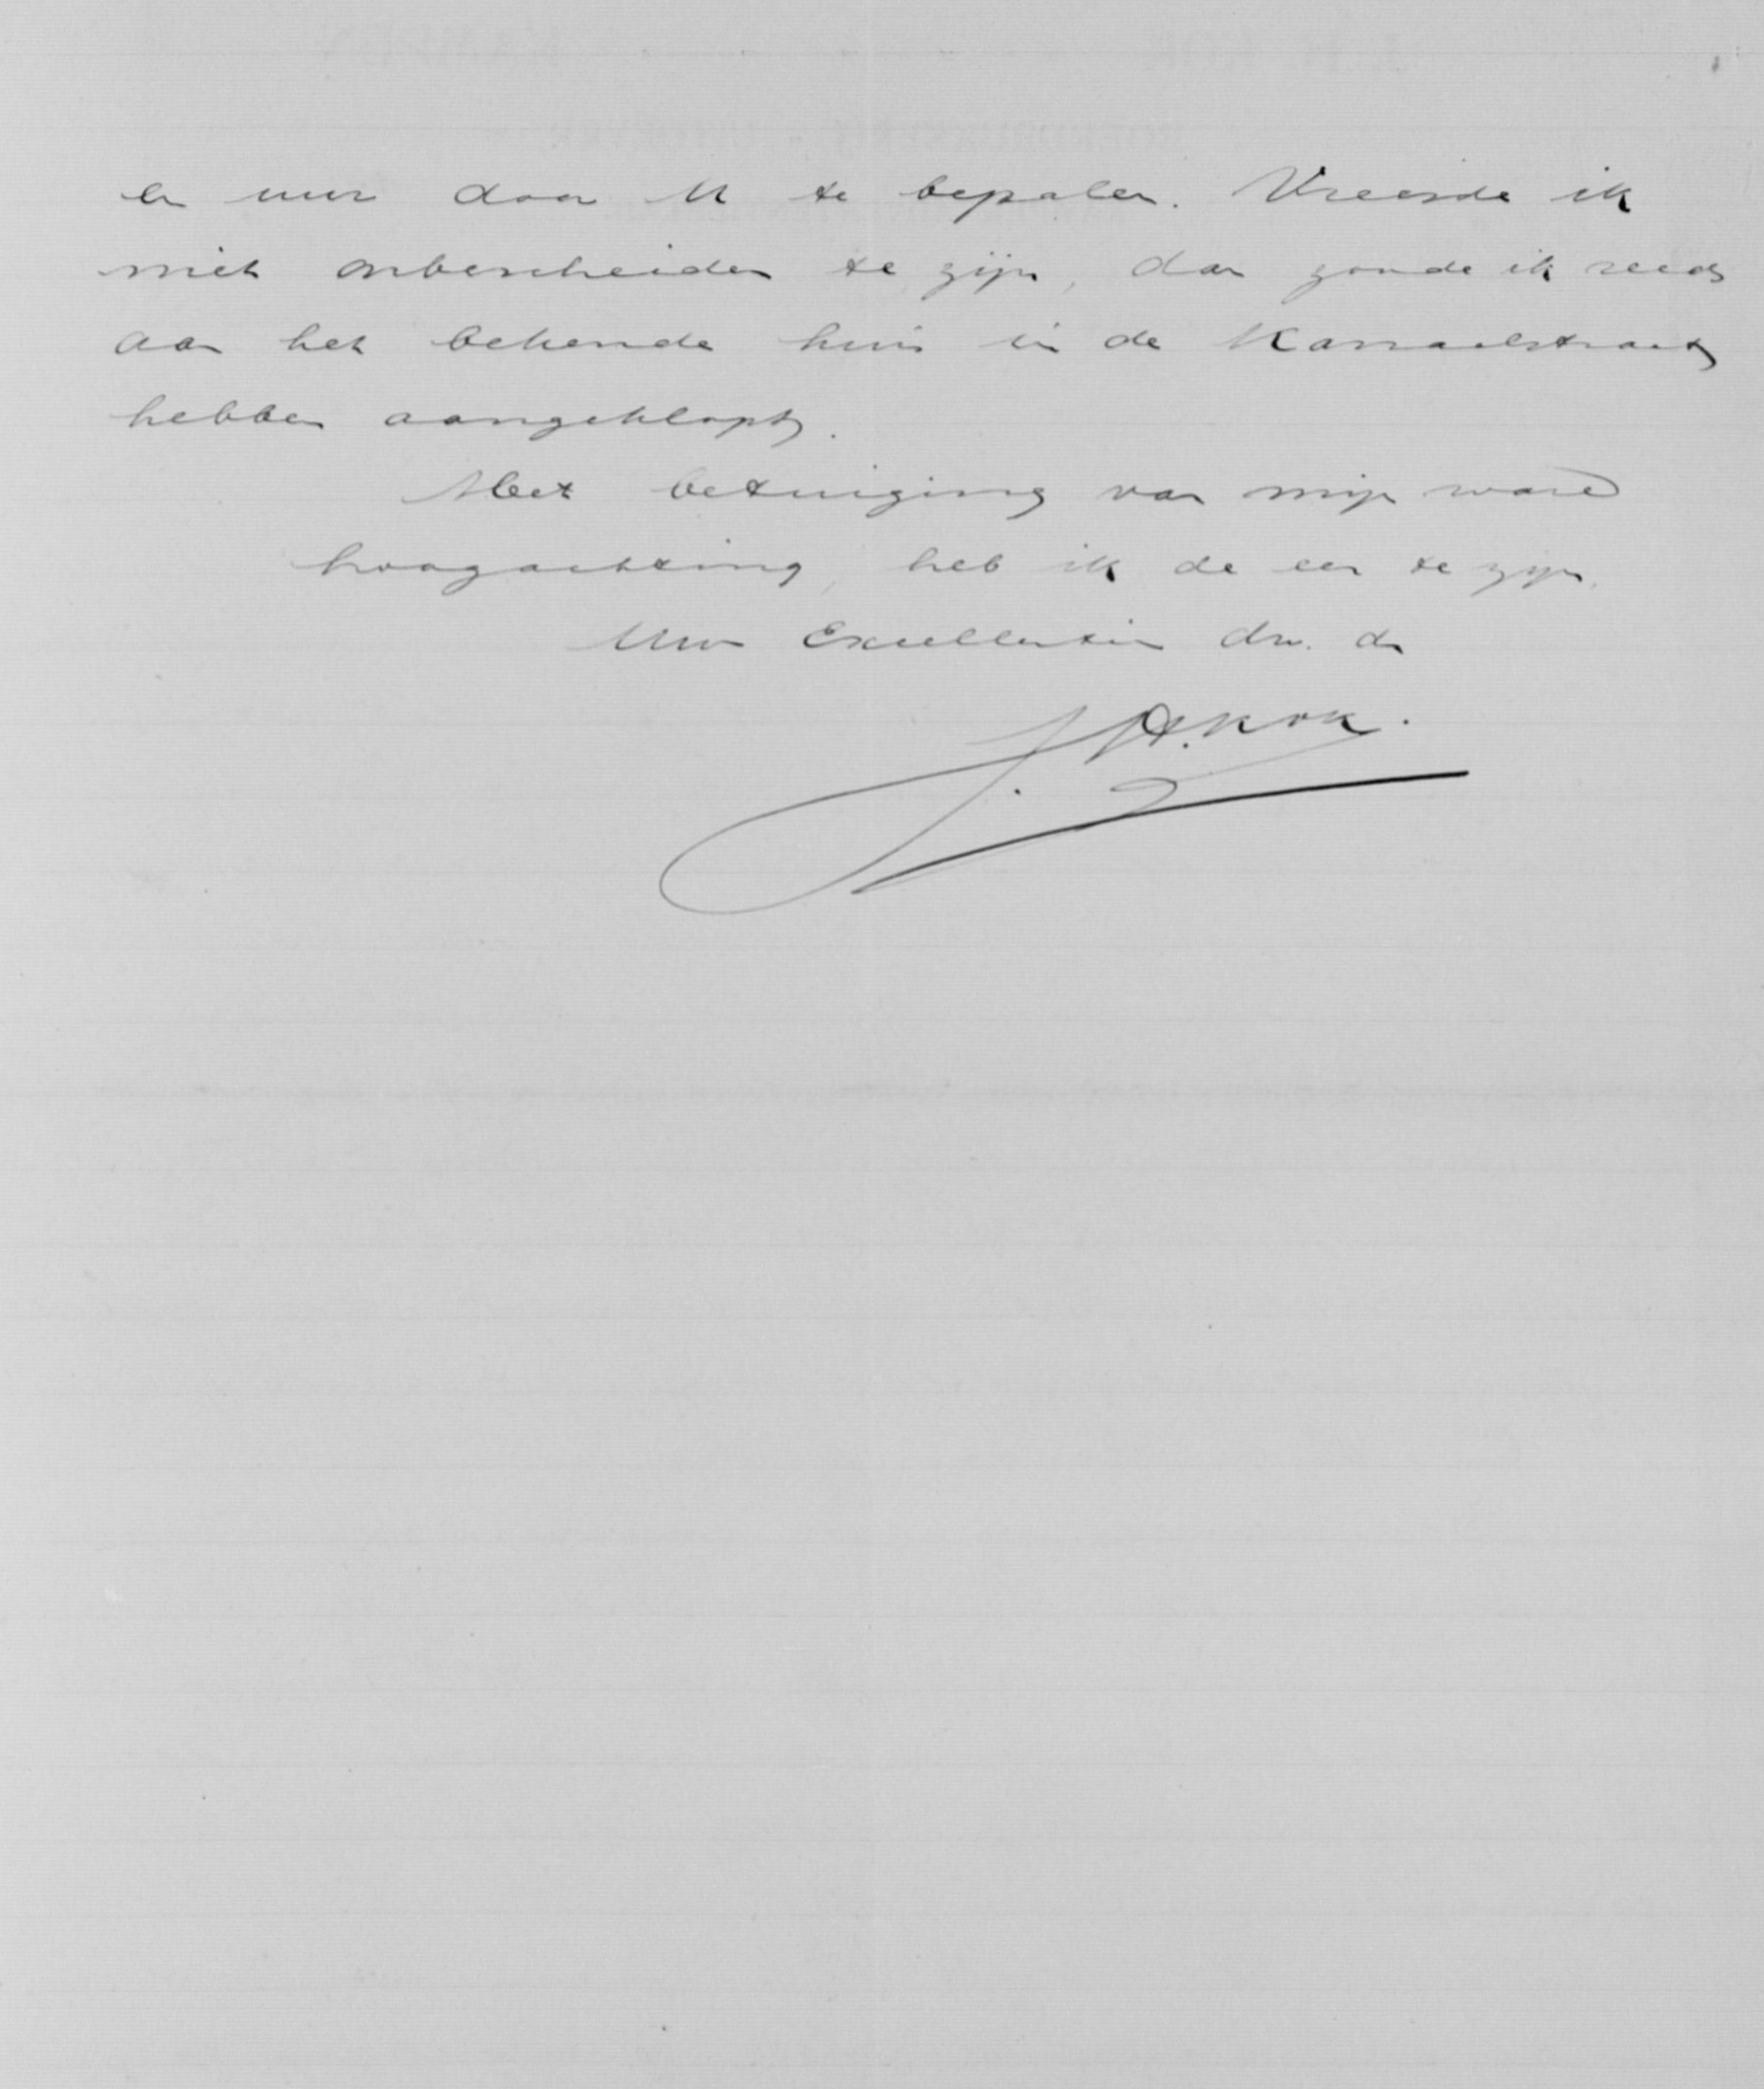 en uur door U te bepalen. Vreesde ik
niet onbescheiden te zijn, dan zoude ik reeds
aan het bekende huis in de Kanaalstraat
hebben aangeklopt.
Met betuiging van mijn ware
hoogachting, heb ik de eer te zijn,
Uwe Excellentie dw. dr
J.H. Kok.